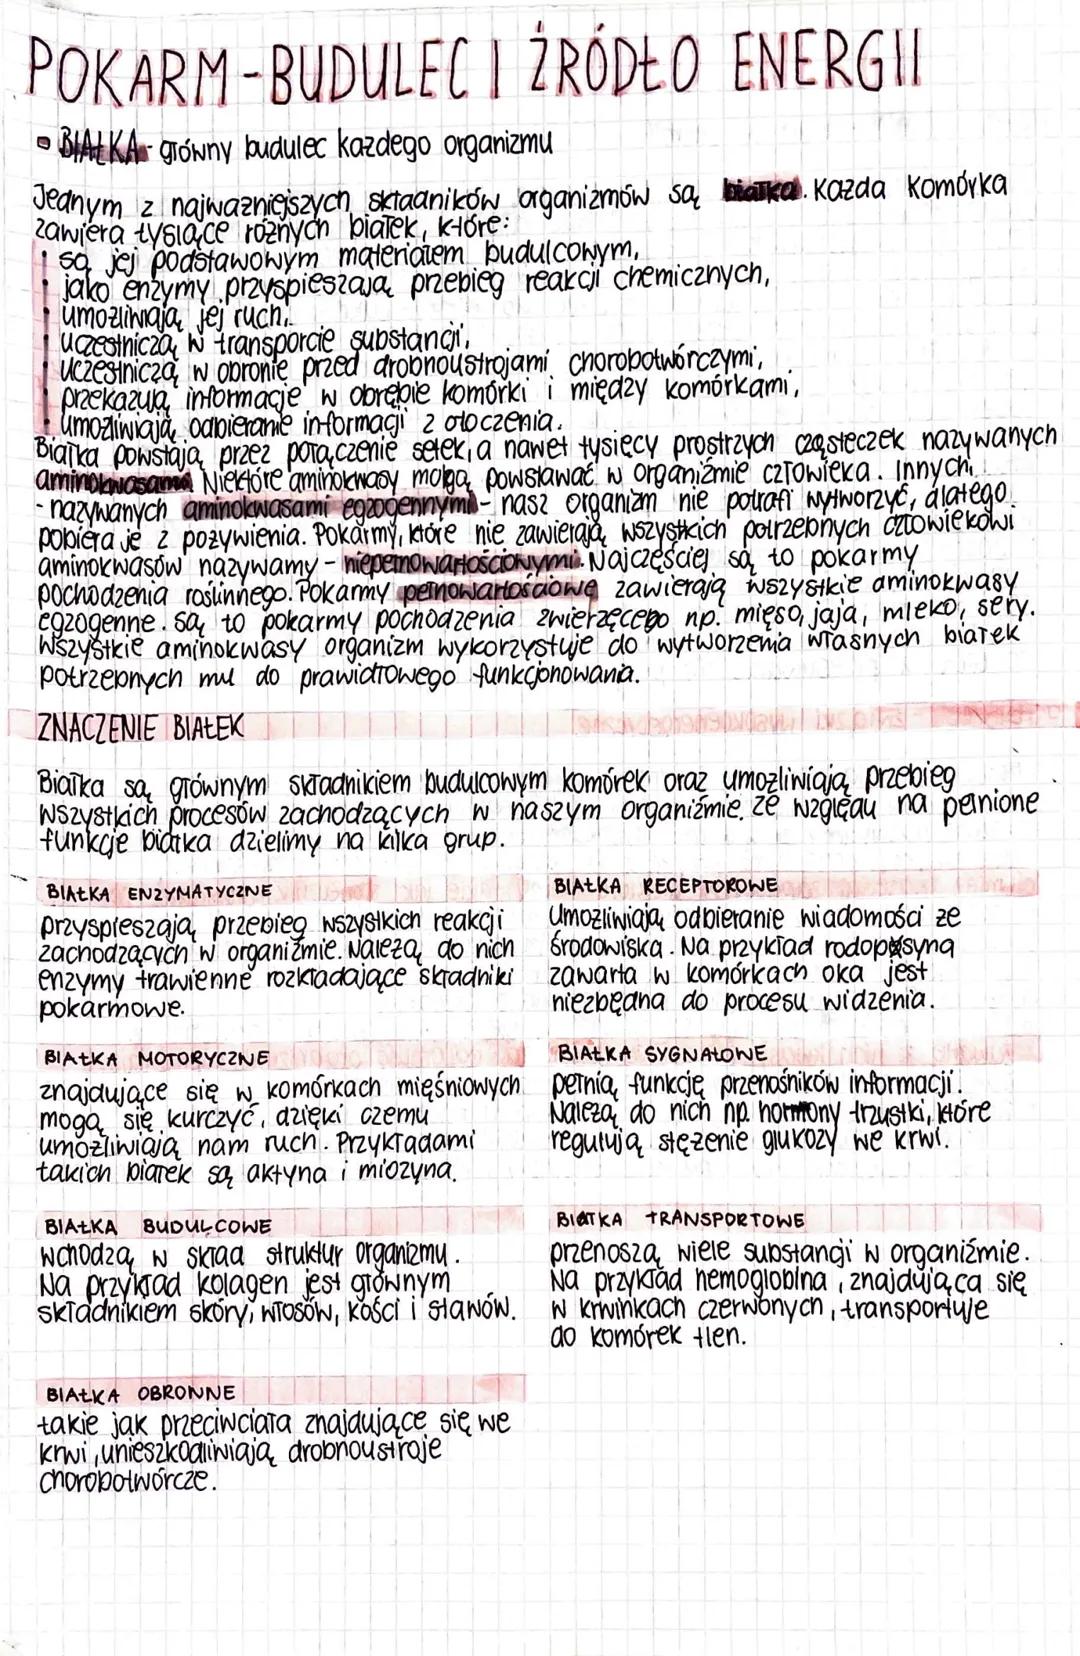 POKARM - BUDULEC I ŹRÓDŁO ENERGII
BIAŁKA - główny budulec każdego organizmu
Jednym z najważniejszych składników organizmów są białka. Każda komórka
zawiera tysiące różnych białek, które:
są jej podstawowym materiałem budulcowym,
jako enzymy przyspieszają przebieg reakcji chemicznych,
umożliwiają jej ruch,
uczestniczą w transporcie substancji,
uczestniczą w obronie przed drobnoustrojami chorobotwórczymi,
przekazują informacje w obrębie komórki i między komórkami,
umożliwiają odbieranie informacji z otoczenia.
Białka powstają przez połączenie setek, a nawet tysięcy prostrzych cząsteczek nazywanych
aminokwasami. Niektóre aminokwasy mogą powstawać w organiźmie człowieka. Innych,
- nazywanych aminokwasami egzogennymi - nasz organizm nie potrafi wytworzyć, dlatego
pobiera je z pożywienia. Pokarmy, które nie zawierają wszystkich potrzebnych człowiekowi
aminokwasów nazywamy - niepełnowartościowymi. Najczęściej są to pokarmy
pochodzenia roślinnego. Pokarmy pełnowartościowe zawierają wszystkie aminokwasy
egzogenne. Są to pokarmy pochodzenia zwierzęcego np. mięso, jaja, mleko, sery.
Wszystkie aminokwasy organizm wykorzystuje do wytworzenia własnych białek
potrzebnych mu do prawidłowego funkcjonowania.
ZNACZENIE BIAŁEK
Białka są głównym składnikiem budulcowym komórek oraz umożliwiają przebieg
wszystkich procesów zachodzących w naszym organiźmie. Ze względu na pełnione
funkcje białka dzielimy na kilka grup.
BIAŁKA ENZYMATYCZNE
przyspieszają przebieg wszystkich reakcji
zachodzących w organiźmie. Należą do nich
enzymy trawienne rozkładające składniki
pokarmowe.
BIAŁKA MOTORYCZNE
znajdujące się w komórkach mięśniowych
mogą się kurczyć, dzięki czemu
umożliwiają nam ruch. Przykładami
takich białek są aktyna i miozyna.
BIAŁKA BUDULCOWE
wchodzą w skład struktur organizmu.
Na przykład kolagen jest głównym
składnikiem skóry, włosów, kości i stawów.
BIAŁKA OBRONNE
takie jak przeciwciała znajdujące się we
krwi, unieszkodliwiają drobnoustroje
chorobotwórcze.
BIAŁKA RECEPTOROWE
Umożliwiają odbieranie wiadomości ze
środowiska. Na przykład rodopsyna
zawarta w komórkach oka jest
niezbędna do procesu widzenia.
BIAŁKA SYGNAŁOWE
pełnią funkcję przenośników informacji.
Należą do nich np. hormony trzustki, które
regulują stężenie glukozy we krwi.
BIAŁKA TRANSPORTOWE
przenoszą wiele substancji w organiźmie.
Na przykład hemoglobina, znajdująca się
w krwinkach czerwonych, transportuje
do komórek tlen.